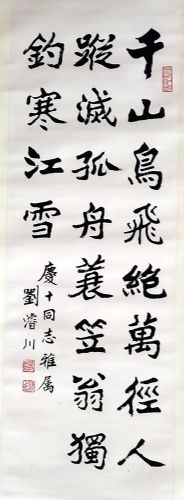 千山鳥飛絕萬徑人
蹤滅孤舟蓑笠翁獨
釣寒江雪
慶十同志雅属
劉濬川